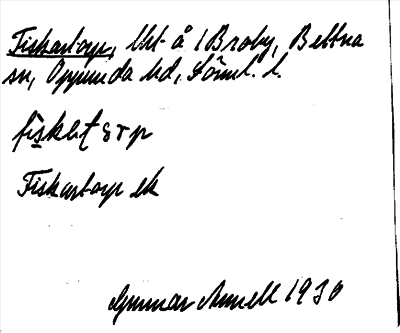 Fiskartorp, lht å 1 Broby, Bettna
sn, Oppunda hd, Söml. l.
fiskatorp
Fiskartorp ek
Gunnar Annell 1930